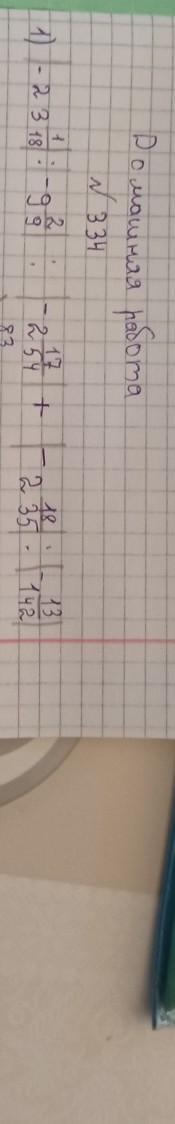 Домашняя работа
№ 334
1) |-23 1/18| : |-9 2/9| : |-2 17/54| + |-2 18/35| : |-1 13/42|
83